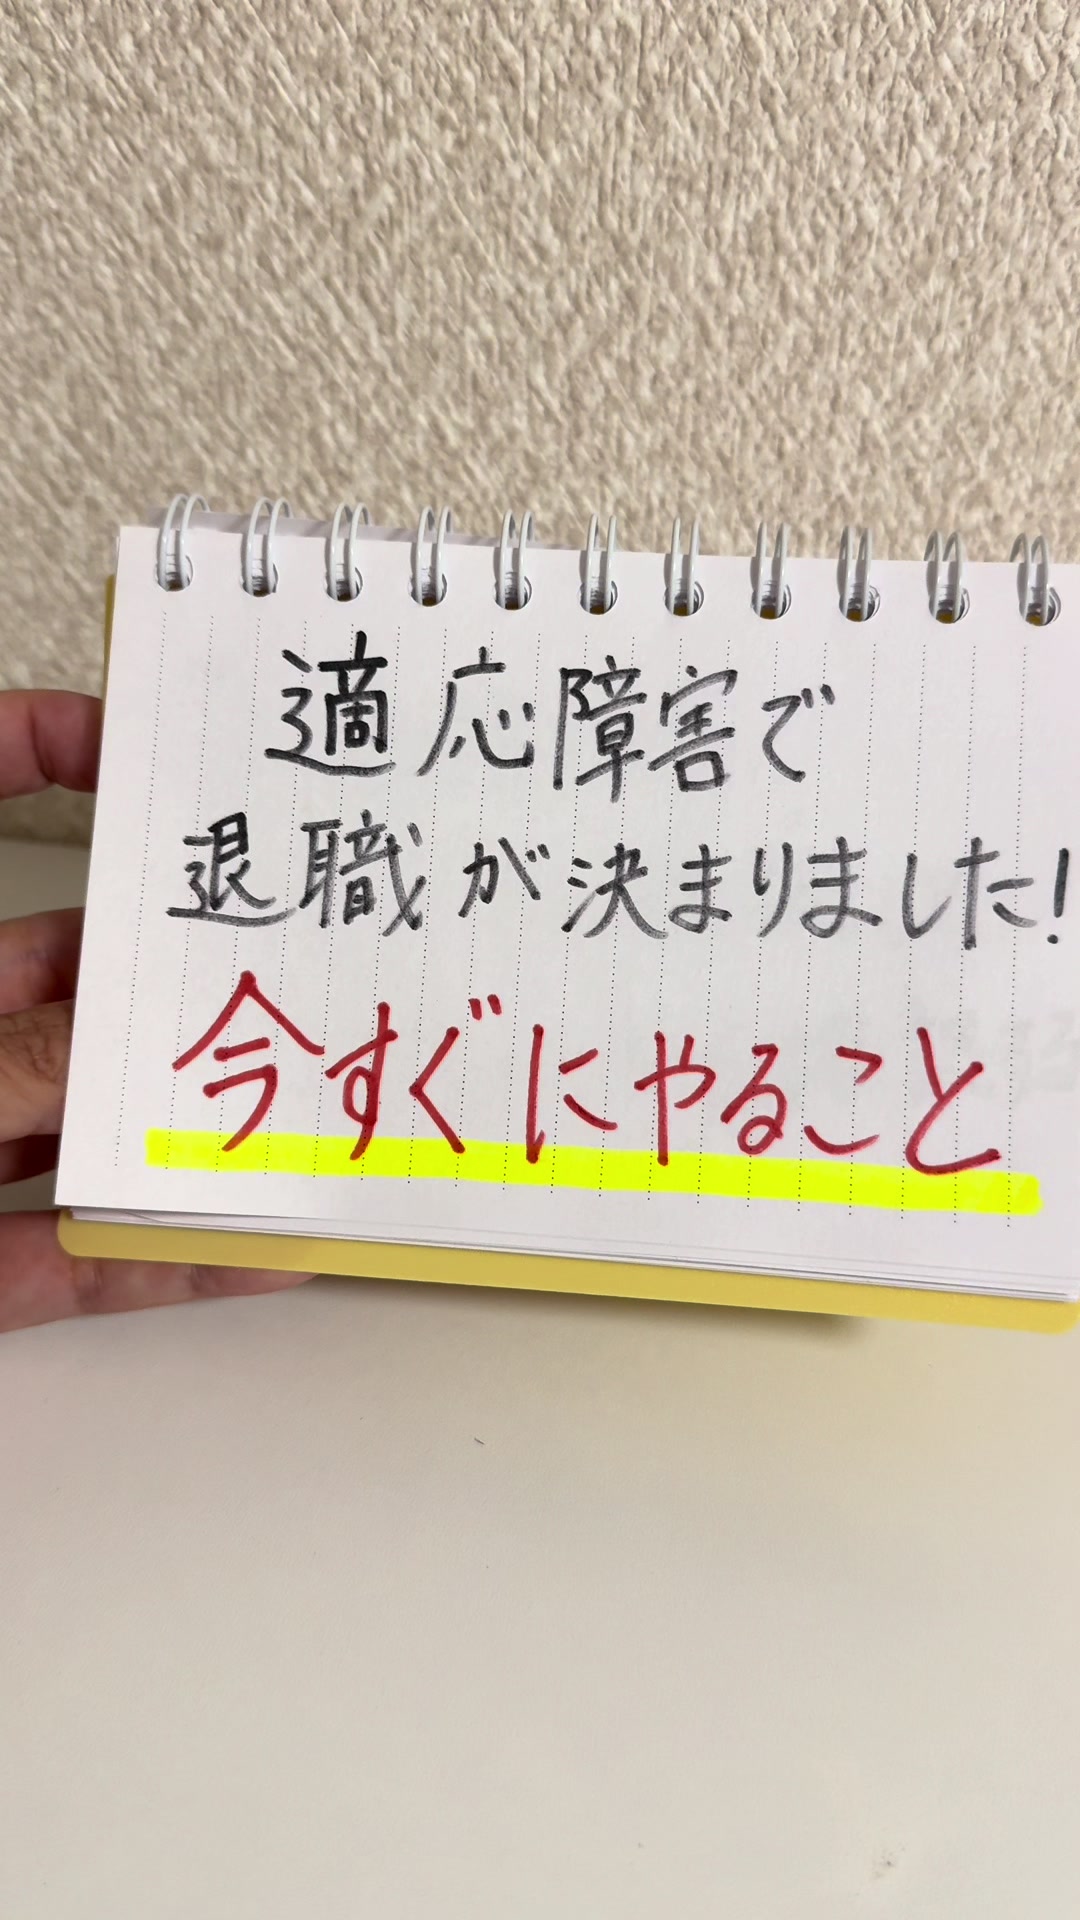 適応障害で
退職が決まりました!
今すぐにやること